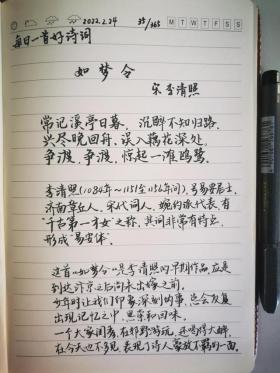 2022.2.24 35/365 M T W T F S S
每日一首好诗词
如梦令
宋 李清照
常记溪亭日暮，沉醉不知归路，
兴尽晚回舟，误入藕花深处，
争渡，争渡，惊起一滩鸥鹭。
李清照（1084年～1151至1156年间），号易安居士，
济南章丘人，宋代词人，婉约派代表，有
"千古第一才女"之称，其词非常有特点，
形成"易安体"。
这首"如梦令"是李清照的早期作品，应是
到达汴京之后尚未出嫁之前。
少年时让我们印象深刻的事，总会反复
出现记忆之中，思索和回味。
一个大家闺秀，在郊野游玩，还喝得大醉，
在今天也不多见，表现了诗人豪放不羁的一面。